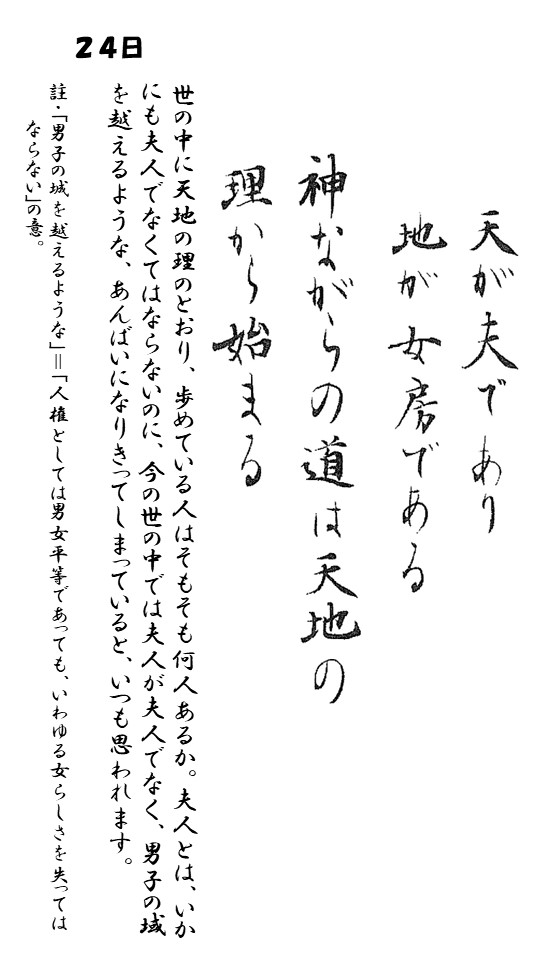 24日
天が夫であり
地が女房である
神ながらの道は天地の
理から始まる
世の中に天地の理のとおり、歩めている人はそもそも何人あるか。夫人とは、いか
にも夫人でなくてはならないのに、今の世の中では夫人が夫人でなく、男子の域
を越えるような、あんばいになりきってしまっていると、いつも思われます。
註・「男子の域を越えるような」＝「人権としては男女平等であっても、いわゆる女らしさを失っては
ならない」の意。